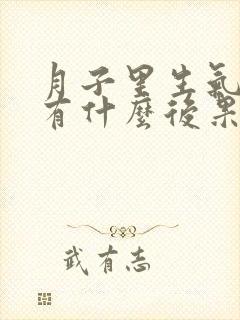 月子里生氣
有什麼後果
武有志